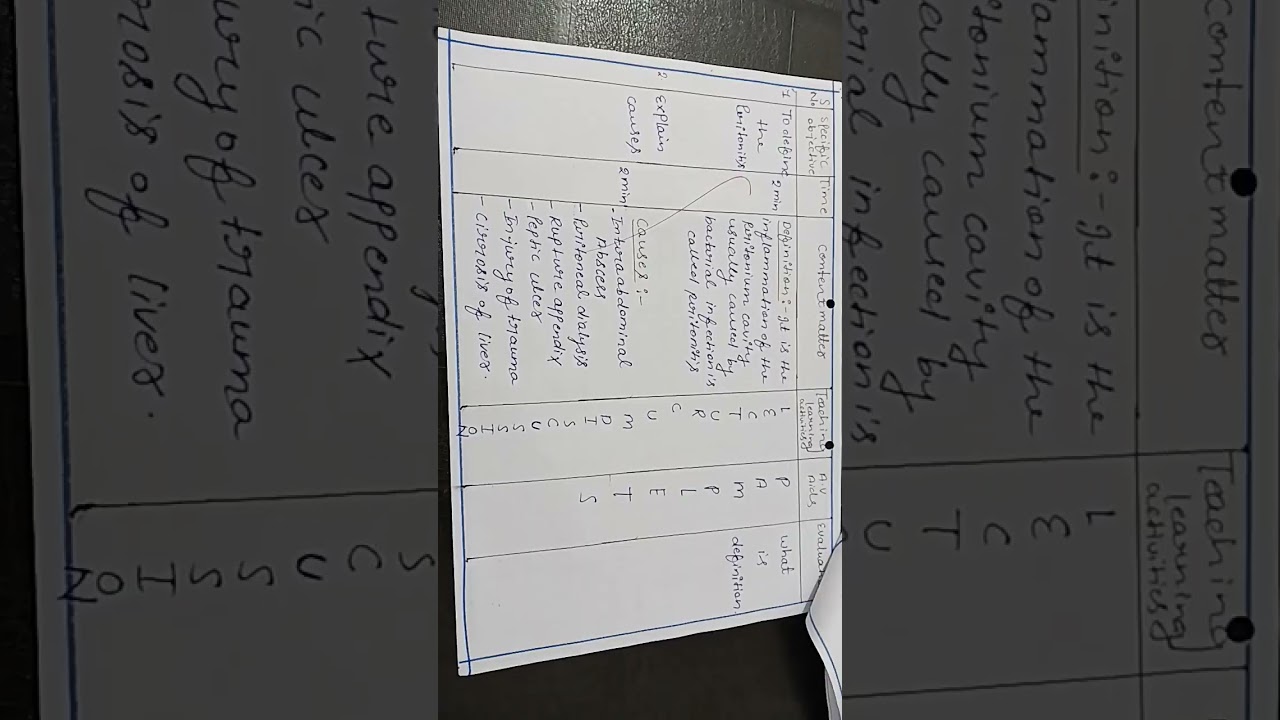 S.No.
Specific objective
Time
Content matter
Teaching learning activities
A.V Aids
Evalua
1
To define
the
Peritonitis
2 min
Definition:- It is the
inflammation of the
Peritonium cavity
usually caused by
bacterial infection is
called peritonitis
LECTURE CUM DISSCUSSION
PAMPLETS
What
is
definition.
2
Explain
causes
2 min
Causes :-
- Intraabdominal
Absces
- Peritoneal dialysis
- Rupture appendix
- Peptic ulcer
- Injury of trauma
- Cirrosis of liver.
content matter
inition:- It is the
ammation of the
tonium cavity
ally caused by
rial infection is
Teaching
learning
activities
L
E
C
T
U
ture appendix
ic ulcer
ury of trauma
rosis of liver.
S
C
U
S
S
I
O
N